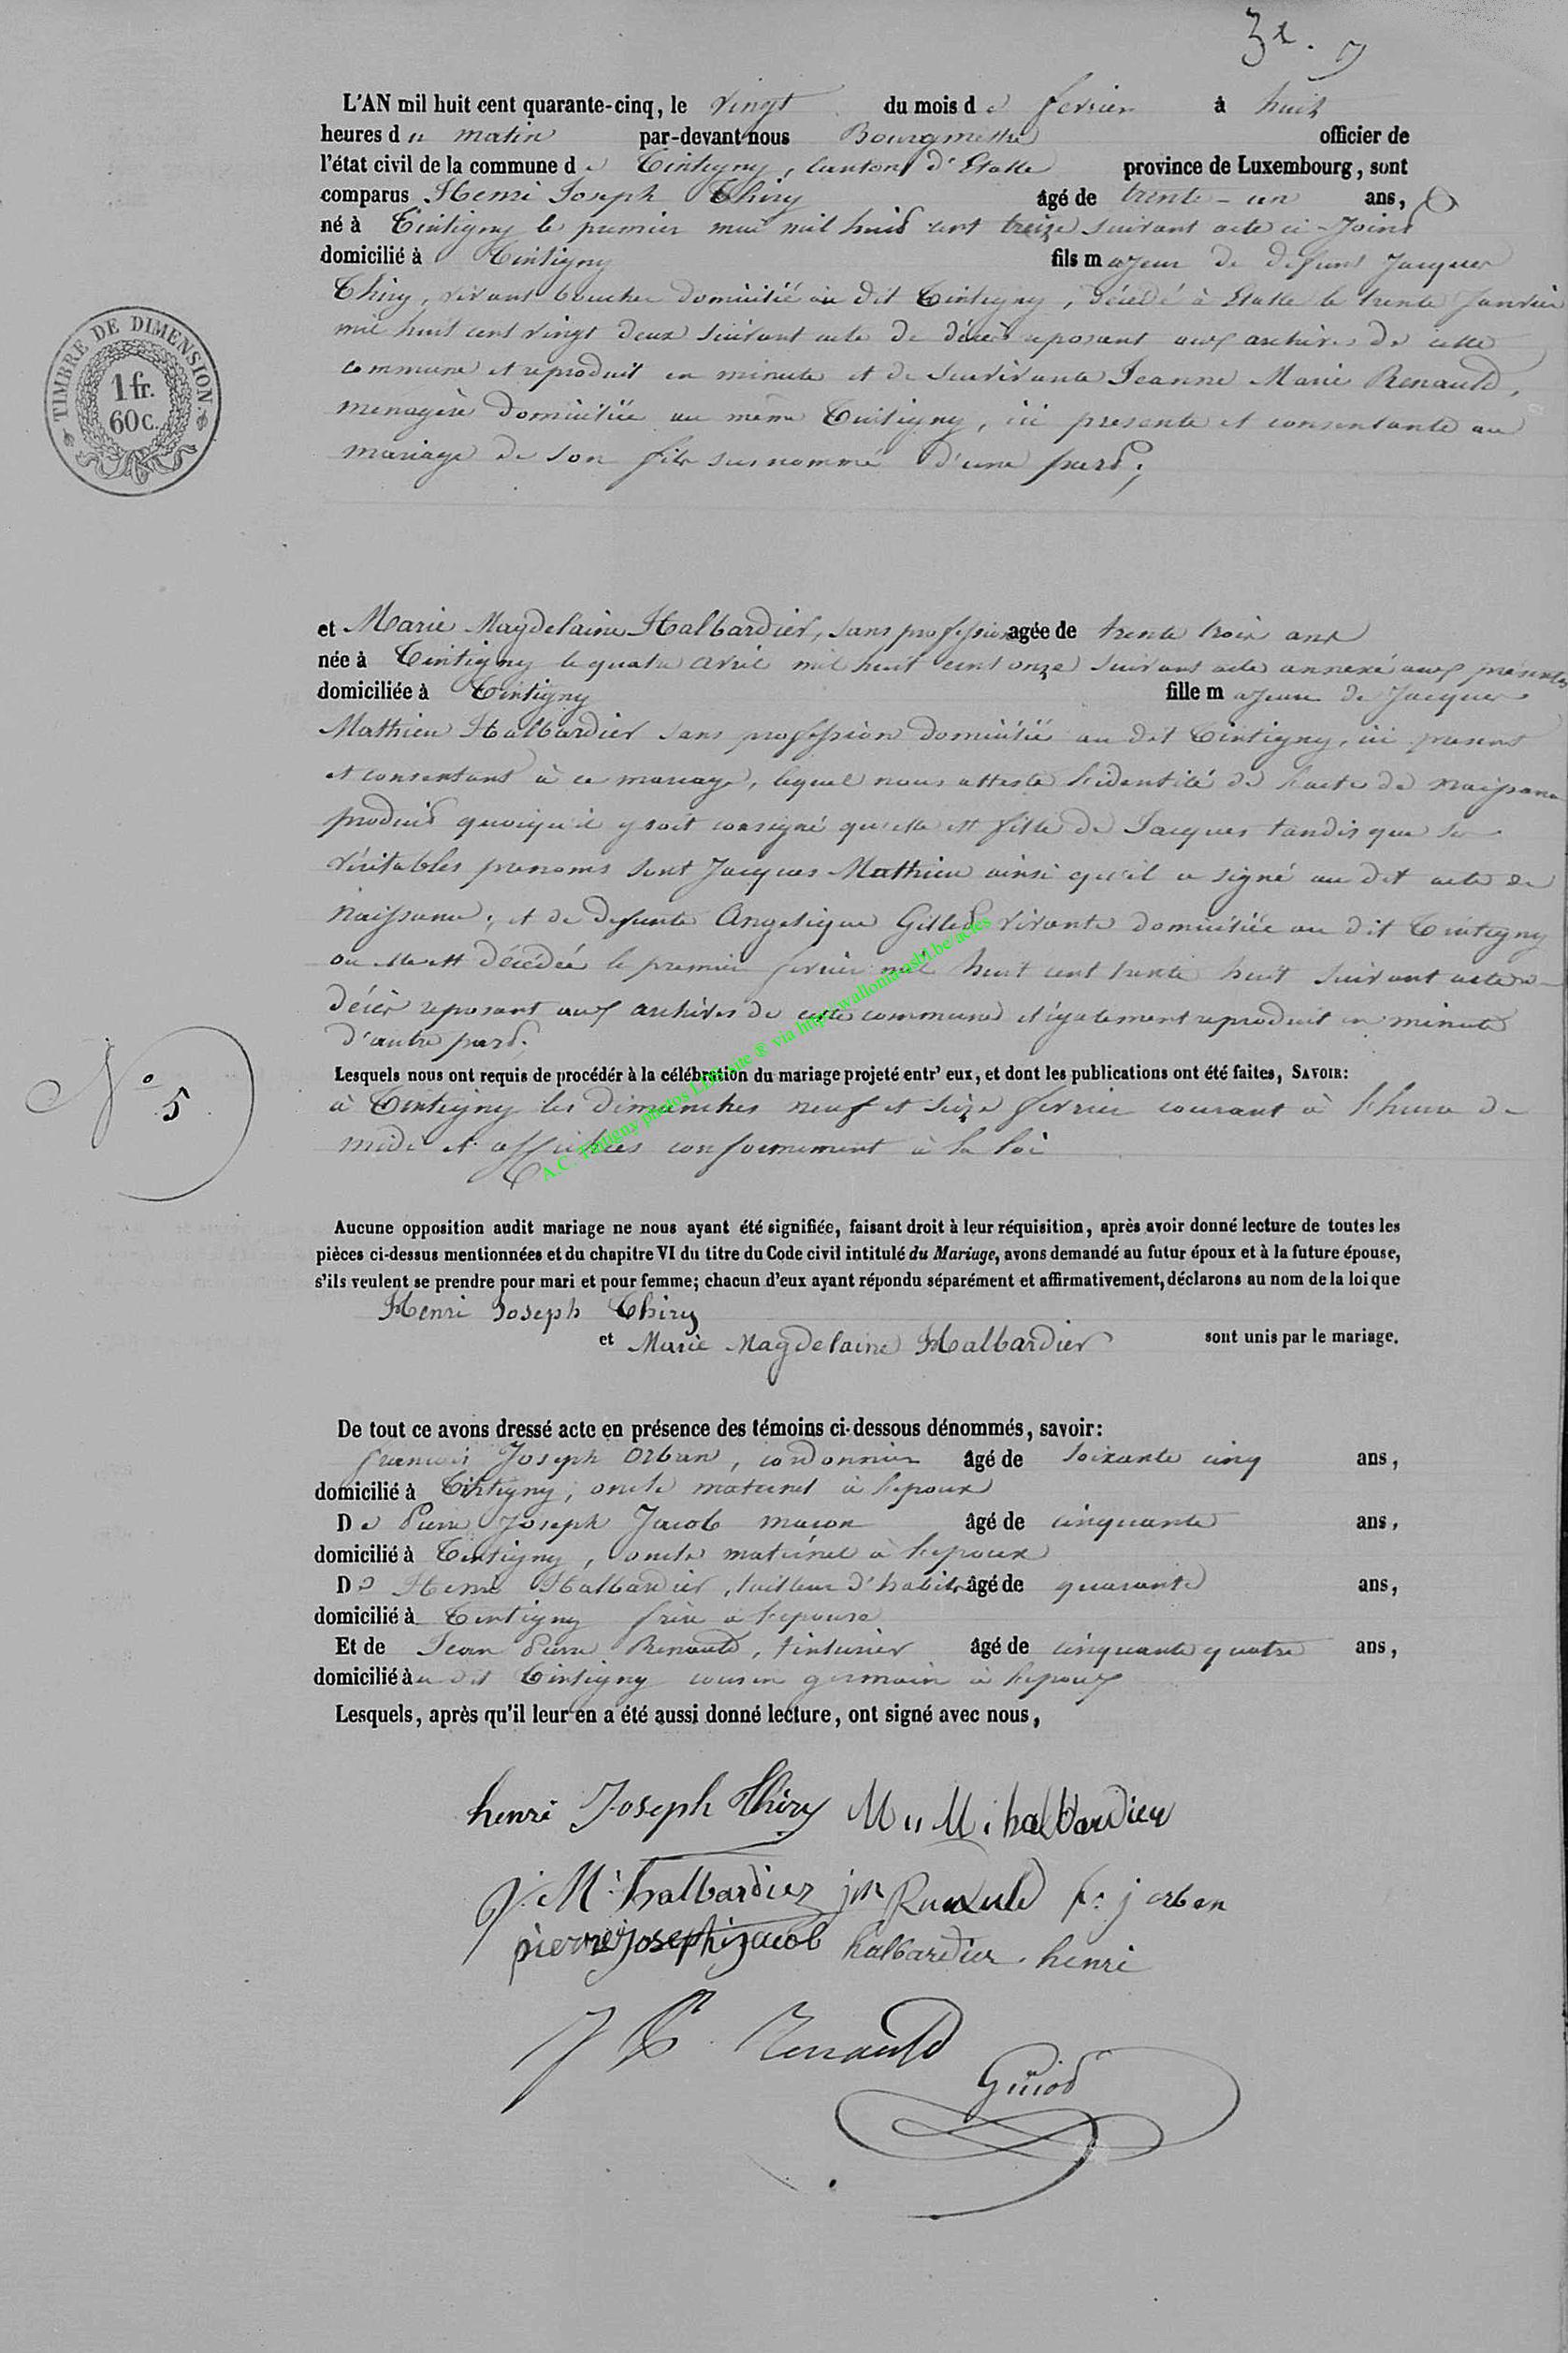 3e. 9
L'AN mil huit cent quarante-cinq, le vingt du mois de fevrier à huit
heures du matin par-devant nous Bourgmestre officier de
l'état civil de la commune de Tintigny, canton d'Etalle province de Luxembourg, sont
comparus Henri Joseph Thiry âgé de trente-un ans,
né à Tintigny le premier mai mil huit cent treize suivant acte ci-joint
domicilié à Tintigny fils majeur de defunt Jacques
Thiry, vivant boucher domicilié au dit Tintigny, décédé à Etalle le trente Janvier
mil huit cent vingt deux suivant acte de décès reposant aux archives de cette
commune et reproduit en minute et de survivante Jeanne Marie Renauld,
menagère domiciliée au même Tintigny, ici presente et consentante au
mariage de son fils susnommé d'une part;
TIMBRE DE DIMENSION
1 fr.
60 c.
et Marie Magdelaine Halbardier, sans profession agée de trente trois ans
née à Tintigny le quatre avril mil huit cent onze suivant acte annexé aux présentes
domiciliée à Tintigny fille majeure de Jacques
Mathieu Halbardier sans profession domicilié au dit Tintigny, ici present
et consentant à ce mariage, lequel nous atteste l'identité de l'acte de naissance
produit quoiqu'il y soit consigné qu'elle est fille de Jacques tandis que ses
véritables prenoms sont Jacques Mathieu ainsi qu'il a signé au dit acte de
naissance; et de defunte Angelique Gilles vivante domiciliée au dit Tintigny
ou elle est décédée le premier fevrier mil huit cent trente huit suivant acte de
décès reposant aux archives de cette commune et également reproduit en minute
d'autre part.
N° 5
Lesquels nous ont requis de procédér à la célébration du mariage projeté entr' eux, et dont les publications ont été faites, SAVOIR:
à Tintigny les dimanches neuf et seize fevrier courant à l'heure de
midi et affichées conformement à la loi
A.C. Tintigny photos LDH site ® via http://wallonia-asbl.be/actes
Aucune opposition audit mariage ne nous ayant été signifiée, faisant droit à leur réquisition, après avoir donné lecture de toutes les
pièces ci-dessus mentionnées et du chapitre VI du titre du Code civil intitulé du Mariage, avons demandé au futur époux et à la future épouse,
s'ils veulent se prendre pour mari et pour femme; chacun d'eux ayant répondu séparément et affirmativement, déclarons au nom de la loi que
Henri Joseph Thiry
et Marie Magdelaine Halbardier sont unis par le mariage.
De tout ce avons dressé acte en présence des témoins ci-dessous dénommés, savoir:
francois Joseph Orban, cordonnier âgé de soixante cinq ans,
domicilié à Tintigny, oncle maternel à l'epoux
De Pierre Joseph Jacob macon âgé de cinquante ans,
domicilié à Tintigny, oncle maternel à l'epoux
De Henri Halbardier, tailleur d'habits âgé de quarante ans,
domicilié à Tintigny frère à l'epouse
Et de Jean Pierre Renauld, tinturier âgé de cinquante quatre ans,
domicilié au dit Tintigny cousin germain à l'epoux
Lesquels, après qu'il leur en a été aussi donné lecture, ont signé avec nous,
henri Joseph Thiry M M halbardier
J. M. halbardier jm Renauld f: j orban
pierre joseph jacob halbardier henri
J P Renauld
Guiot